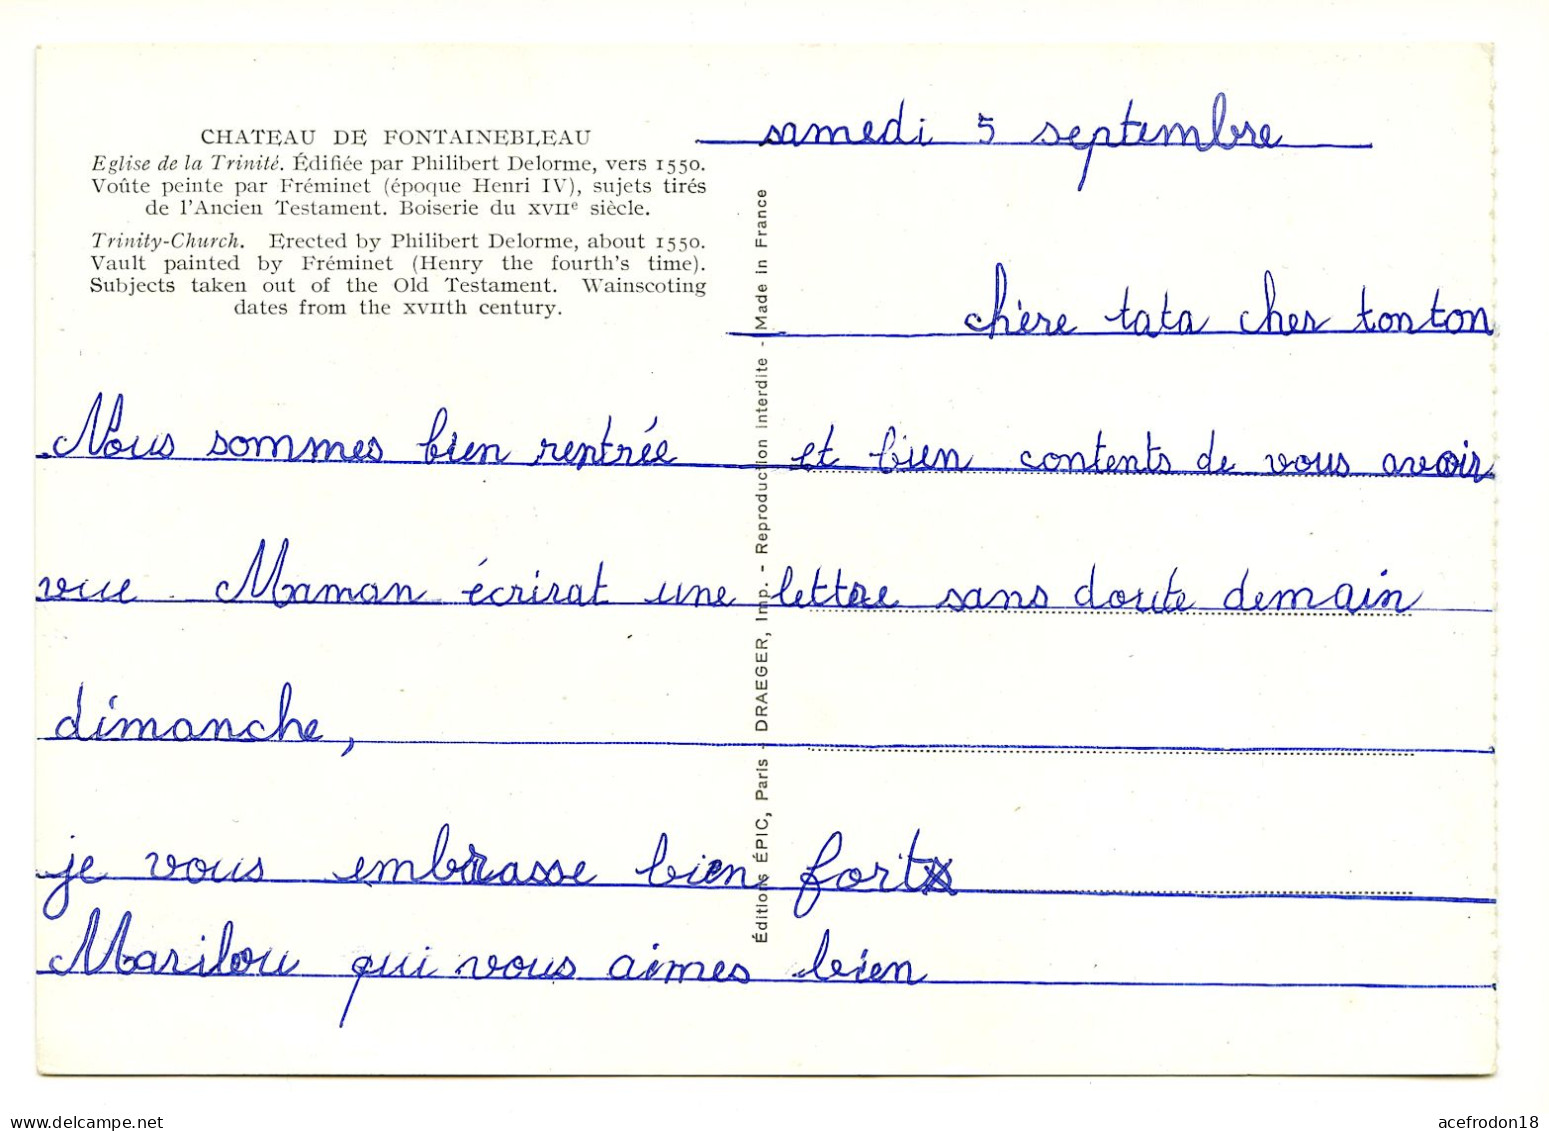 CHATEAU DE FONTAINEBLEAU
Eglise de la Trinité. Édifiée par Philibert Delorme, vers 1550.
Voûte peinte par Fréminet (époque Henri IV), sujets tirés
de l'Ancien Testament. Boiserie du XVIIe siècle.
Trinity-Church. Erected by Philibert Delorme, about 1550.
Vault painted by Fréminet (Henry the fourth's time).
Subjects taken out of the Old Testament. Wainscoting
dates from the XVIIth century.
Éditions ÉPIC, Paris - DRAEGER, Imp. - Reproduction interdite - Made in France
samedi 5 septembre
chère tata cher tonton
Nous sommes bien rentrée et bien contents de vous avoir
vue Maman écrirat une lettre sans doute demain
dimanche,
je vous embrasse bien fort
Marilou qui vous aimes bien
www.delcampe.net
acefrodon18